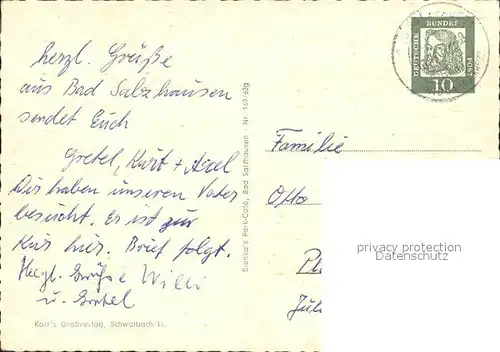 herzl. Grüße
aus Bad Salzhausen
sendet Euch
Gretel, Kurt + Axel
Wir haben unseren Vater
besucht. Er ist zur
Kur hier. Brief folgt.
Herzl. Grüße Willi
u. Gretel
Korr's Großverlag, Schwalbach/Ts.
Bad Salzhausen - Nr. 169/60g
DEUTSCHE
BUNDES
POST
10
Familie
Otto
privacy protection
Datenschutz